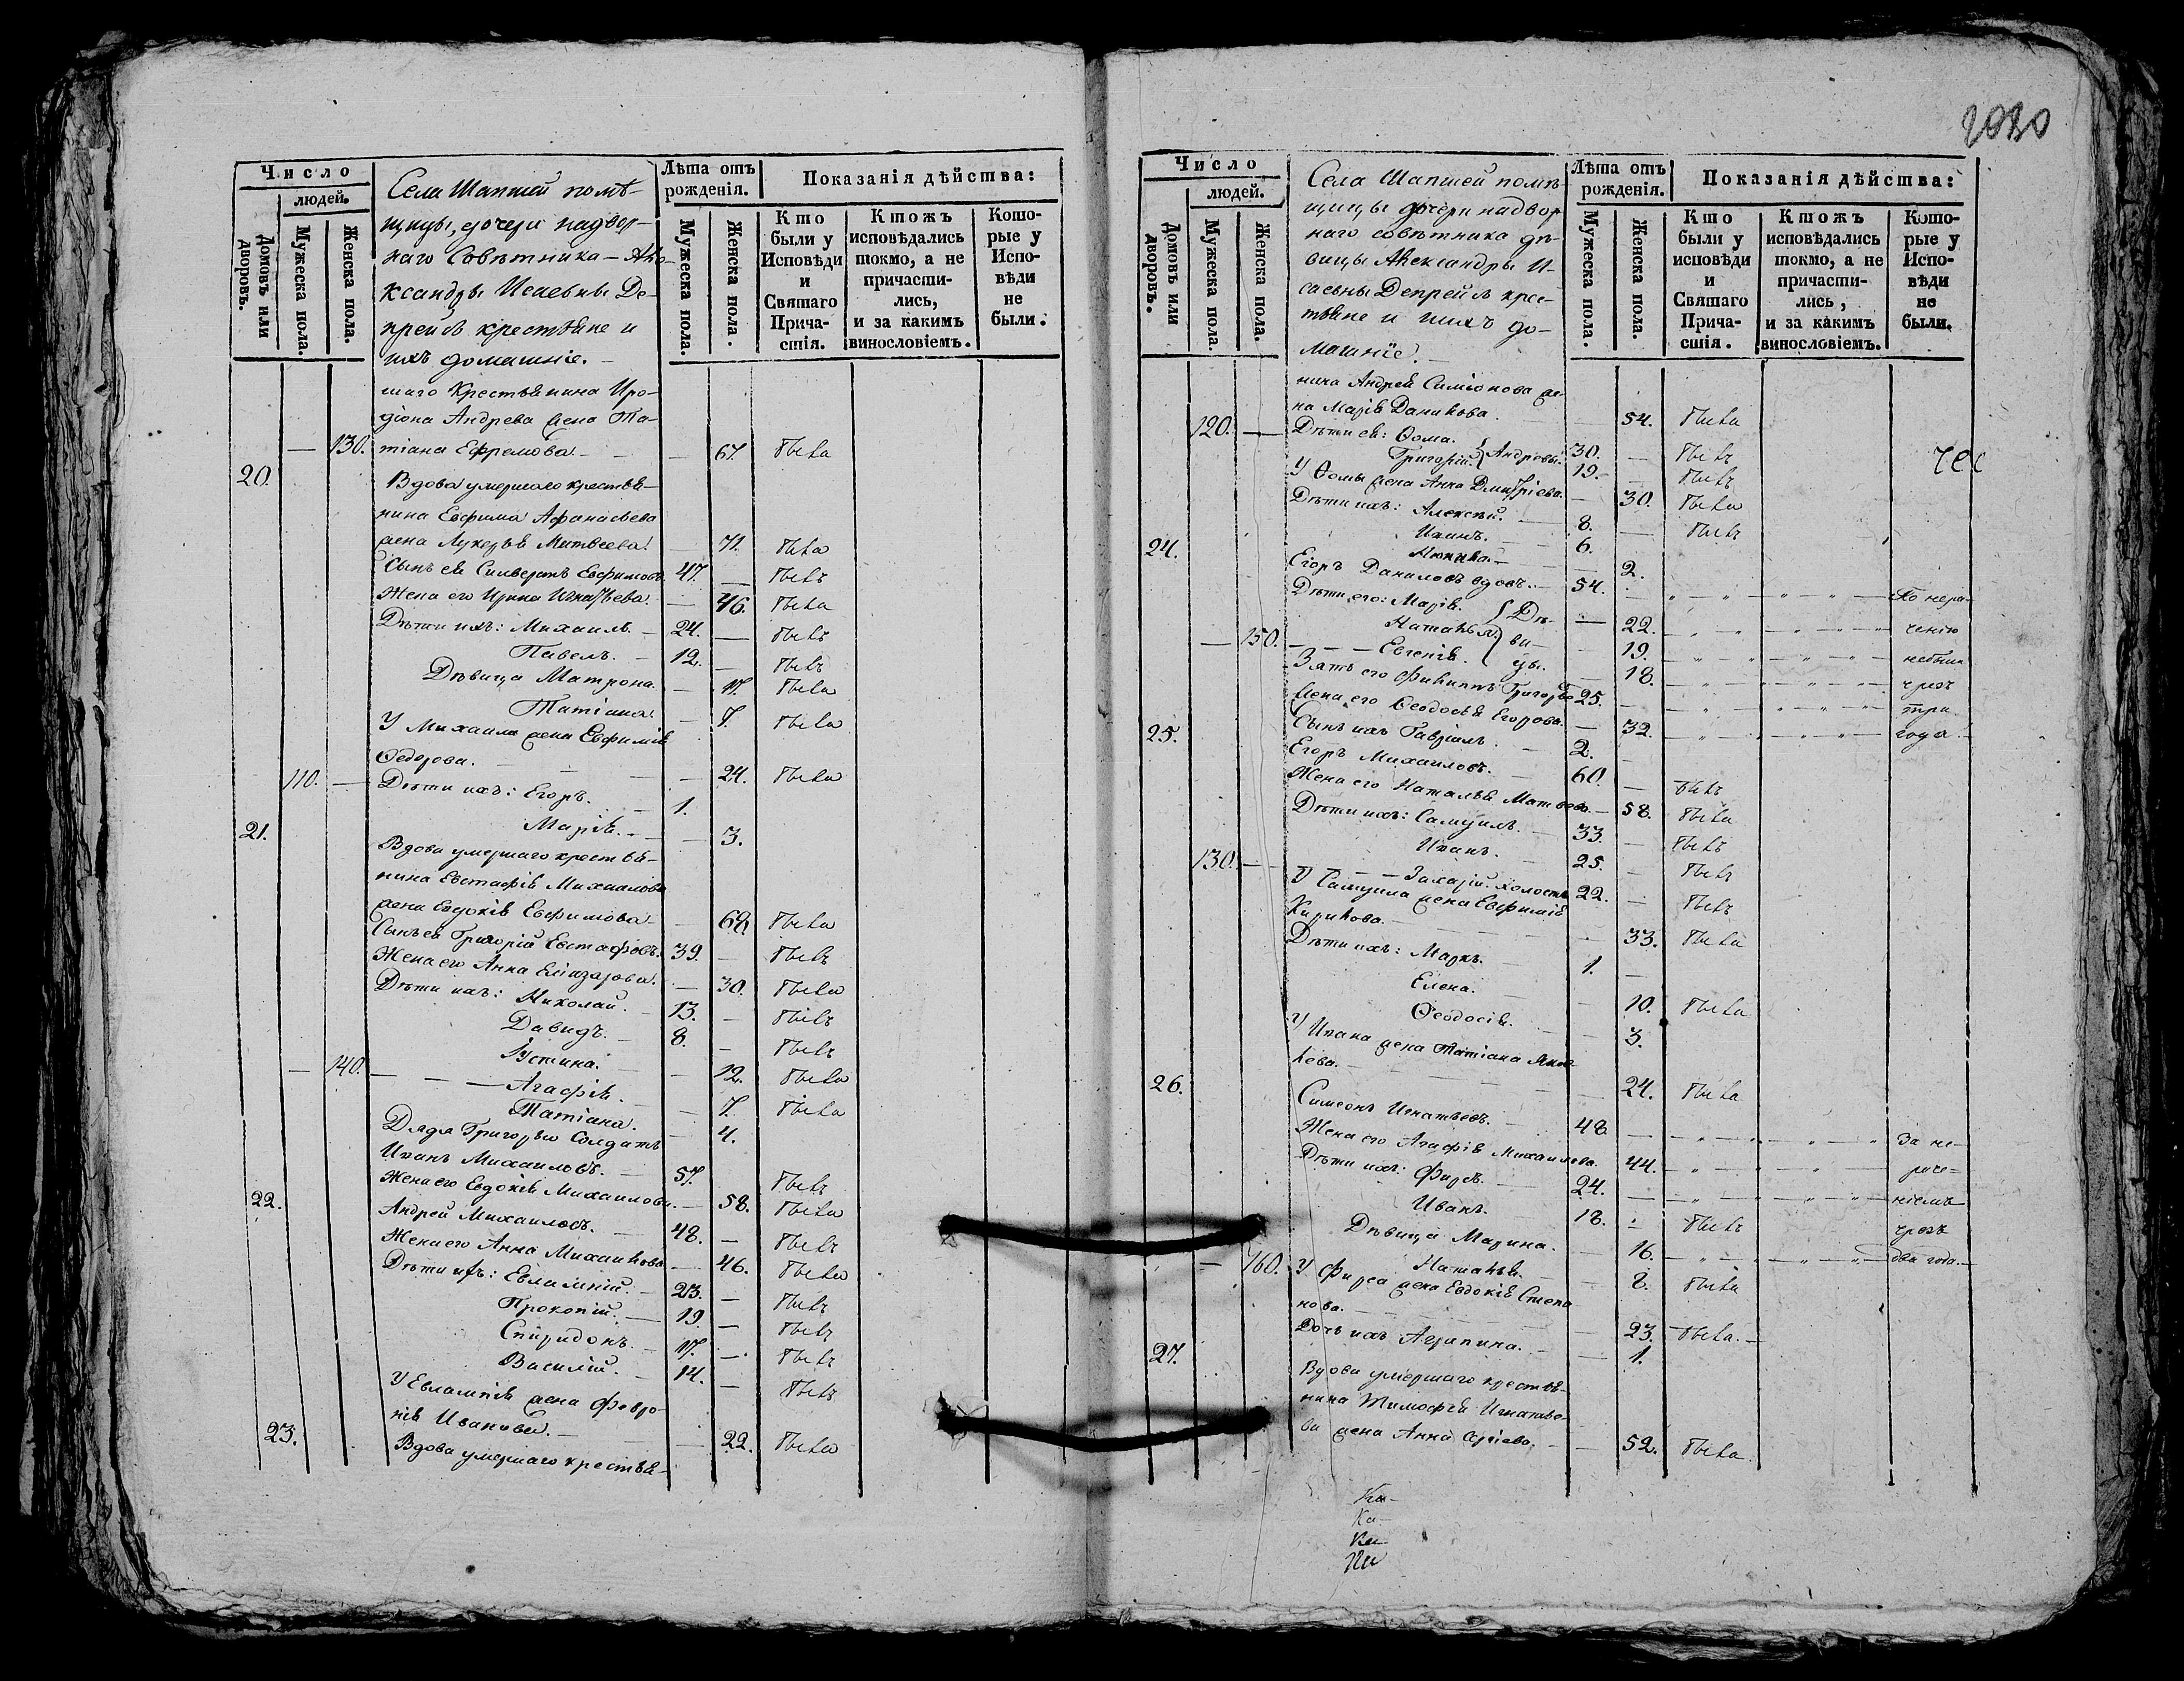 Число
людей.
Домовъ или дворовъ.
Мужеска пола.
Женска пола.
Села Шапшей помѣ-
щицы, дочери надвор-
наго Совѣтника – Але-
ксандры Исаевны Де-
прейсъ крестьяне и
ихъ домашніе. –
Лѣта отъ рожденія.
Мужеска пола.
Женска пола.
Показанія дѣйства:
Кто были у Исповѣди и Святаго Прича-стія.
Ктожъ исповѣдались токмо, а не причасти-лись, и за какимъ винословіемъ.
Кото-рые у Испо-вѣди не были.
шаго Крестьянина Иро-
діона Андрева жена Та-
– 130. тіана Ефремова. – – 67 была
20. Вдова умершаго крестья-
нина Евфима Афанасьева
жена Лукерья Матвеева. – 71. была
Сынъ ея Сильверстъ Евфимовъ. 47. – былъ
Жена его Ирина Игнатьева. – 46. была
Дѣти ихъ: Михаилъ. – 24. – былъ
Павелъ. – 12. – былъ
Дѣвица Матрона. – 17. была
Татіана. – 7. была
У Михаила жена Евфимія
Ѳедорова. – – 24. была
110. – Дѣти ихъ: Егоръ. – 1.
Марія. – – 3.
21. Вдова умершаго крестья-
нина Евстафія Михаилова
жена Евдокія Евфимова. – 68. была
Сынъ ея Григорій Евстафьевъ. 39. – былъ
Жена его Анна Елиазарова. – 30. была
Дѣти ихъ: Николай. – 13. – былъ
Давидъ. – 8. – былъ
Іустина. – 12. была
– 140. – – – Агафія. – 7. была
Татіана. – 4.
Дядя Григорью Солдатъ
Иванъ Михаиловъ. – 57. былъ
Жена его Евдокія Михаилова. – 58. была
22. Андрей Михаиловъ. – 48. – былъ
Жена его Анна Михаилова. – 46. была
Дѣти ихъ: Евлампій. – 23. – былъ
Прокопій. – 19. – былъ
Спиридонъ. – 17. – былъ
Василій. – 14. – былъ
У Евлампія жена Февро-
нія Иванова. – – 22. была
23. Вдова умершаго крестья-
2030
Число
людей.
Домовъ или дворовъ.
Мужеска пола.
Женска пола.
Села Шапшей помѣ-
щицы дочери надвор
наго совѣтника дѣ-
вицы Александры И-
саевны Депрейсъ крес-
тьяне и ихъ до-
машніе. –
Лѣта отъ рожденія.
Мужеска пола.
Женска пола.
Показанія дѣйства:
Кто были у исповѣди и Святаго Прича-стія.
Ктожъ исповѣдались токмо, а не причасти-лись, и за какимъ винословіемъ.
Кото-рые у Испо-вѣди не были.
нина Андрея Симіонова же-
на Марія Данилова. 54. была
120. – Дѣти ея: Ѳома. } Андреевы. 30. – былъ
Григорій. 19. – былъ
У Ѳомы жена Анна Дмитріева. – 30. была
Дѣти ихъ: Алексѣй. – 8. – былъ
Иванъ. – 6.
– 2.
24. Егоръ Даниловъ вдовъ. – 54. – По нера-
Дѣти его: Марія. } Дѣ- – 22. ченію
– 150. Наталья. ви- – 19. небыли
– – – Евгенія. цы. – 18. чрезъ
Зять его Филиппъ Григорьевъ 25. – три
Жена его Ѳеодосья Егорова. – 32. года. –
Сынъ ихъ Гавріилъ. – 2. –
25. Егоръ Михаиловъ. – 60. – былъ
Жена его Наталья Матвеева. – 58. была
Дѣти ихъ: Самуилъ. – 33. – былъ
Иванъ. – 25. – былъ
130. – – – – Захарій. холостъ 22. – былъ
У Самуила жена Евфимія
Кирилова. – – 33. была
Дѣти ихъ: Маркъ. – 1. –
Елена. – – 10. была
Ѳеодосія. – – 3.
У Ивана жена Татіана Яков-
лева. – – 24. была
26. Симеонъ Игнатьевъ. – 48. – За не-
Жена его Агафія Михаилова. 44. – раче-
Дѣти ихъ: Фирсъ. – 24. – ніемъ
Иванъ. – 18. – былъ чрезъ
Дѣвица Марина. – 16. – два года. –
– 160. Наталья. – 8. была
У Фирса жена Евдокія Степа
нова. – – 23. была. –
Дочь ихъ Агрипина. – – 1.
27. Вдова умершаго крестья-
нина Тимофея Игнатье-
ва жена Анна Сергіева. – – 52. была
Ка-
Ка-
Ка-